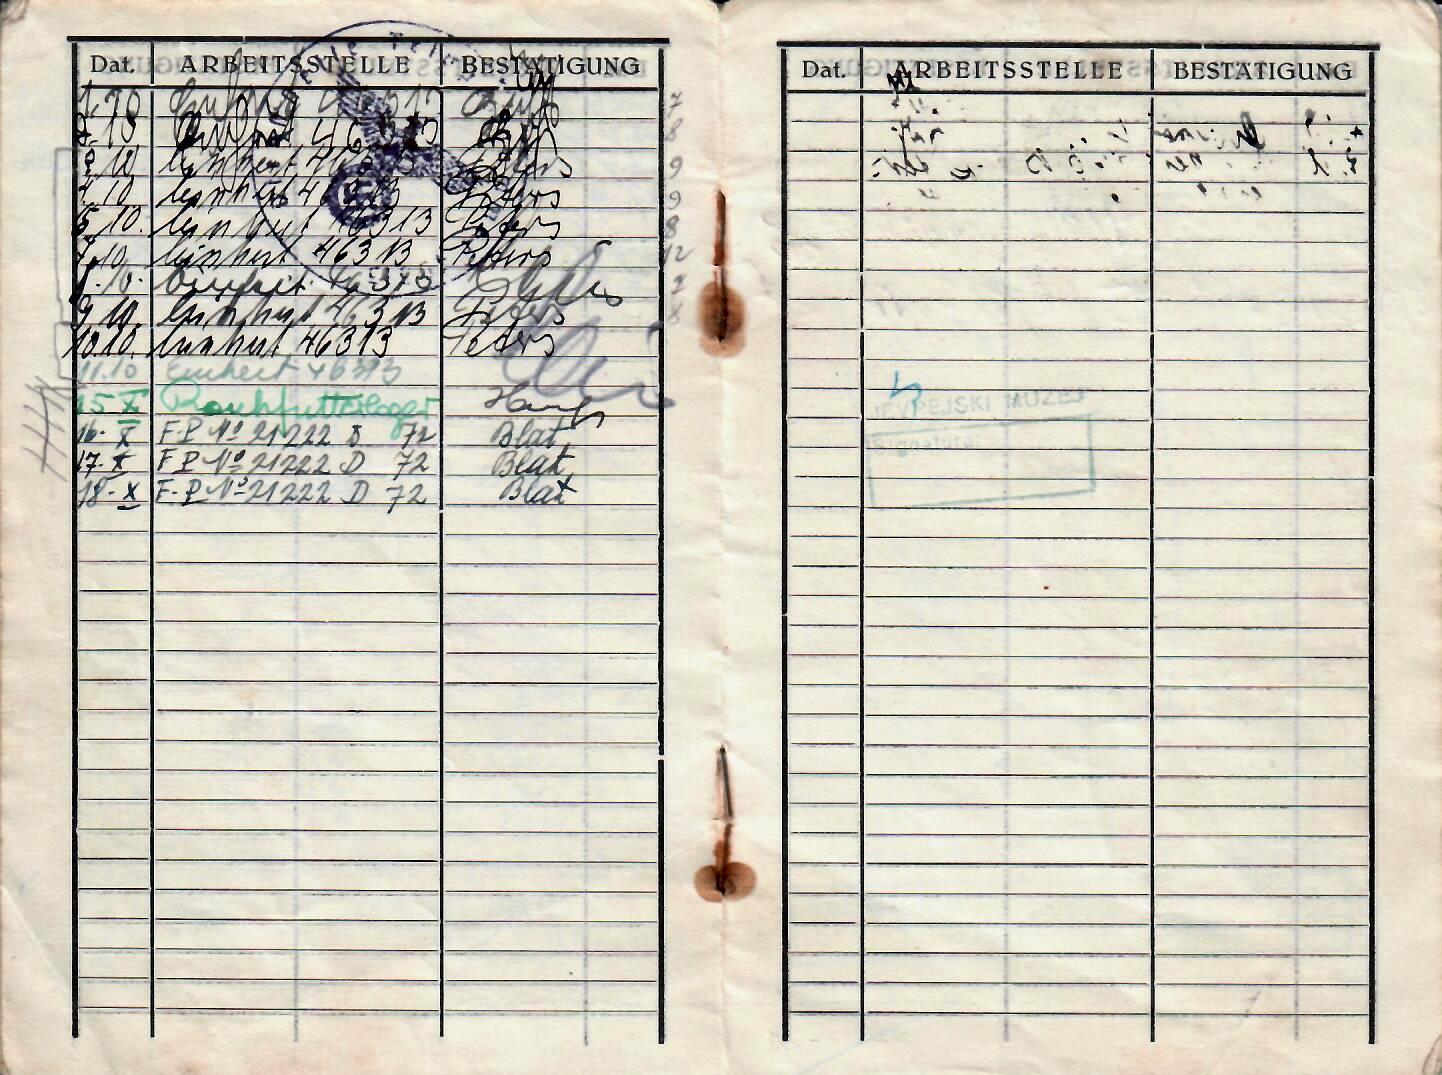 Dat. ARBEITSSTELLE BESTÄTIGUNG
1.10 Einheit 46313 7
2.10 Einheit 46313 8
3.10 Einheit 46313 Peters 9
4.10 Einheit 46313 Peters 9
5.10. Einheit 46313 Peters 8
7.10 Einheit 46313 Peters 12
8.10. Einheit 46313 2
9.10. Einheit 46313 Peters 8
10.10. Einheit 46313 Peters
11.10 Einheit 46313
15 X Rauhfutterlager
16. X F.P Nº 21222 D 72 Blat
17. X F P Nº 21222 D 72 Blat
18. X F.P Nº 21222 D 72 Blat
Dat. ARBEITSSTELLE BESTÄTIGUNG
JEVREJSKI MUZEJ
Signatura: